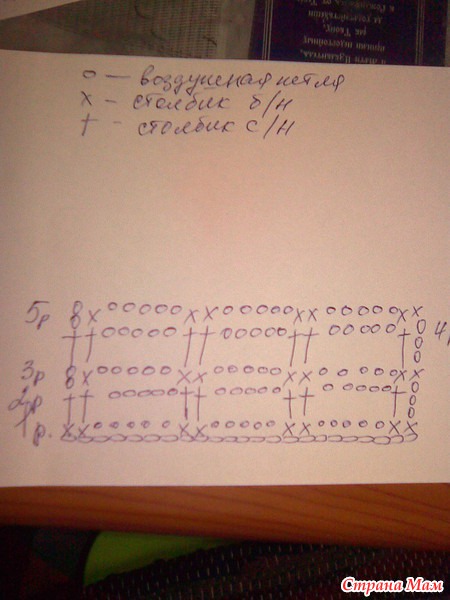 о — воздушная петля
х - столбик б/н
† - столбик с/н
5р 8 х о о о о о х х о о о о о х х о о о о о х х
† † о о о о о † † о о о о о † † о о о о о † о 4р
3р 8 х о о о о о х х о о о о о х х о о о о о х х
2р † † о о о о о † † о о о о о † † о о о о о † о
1р. х х о о о о о х х о о о о о х х о о о о о х х
Страна Мам